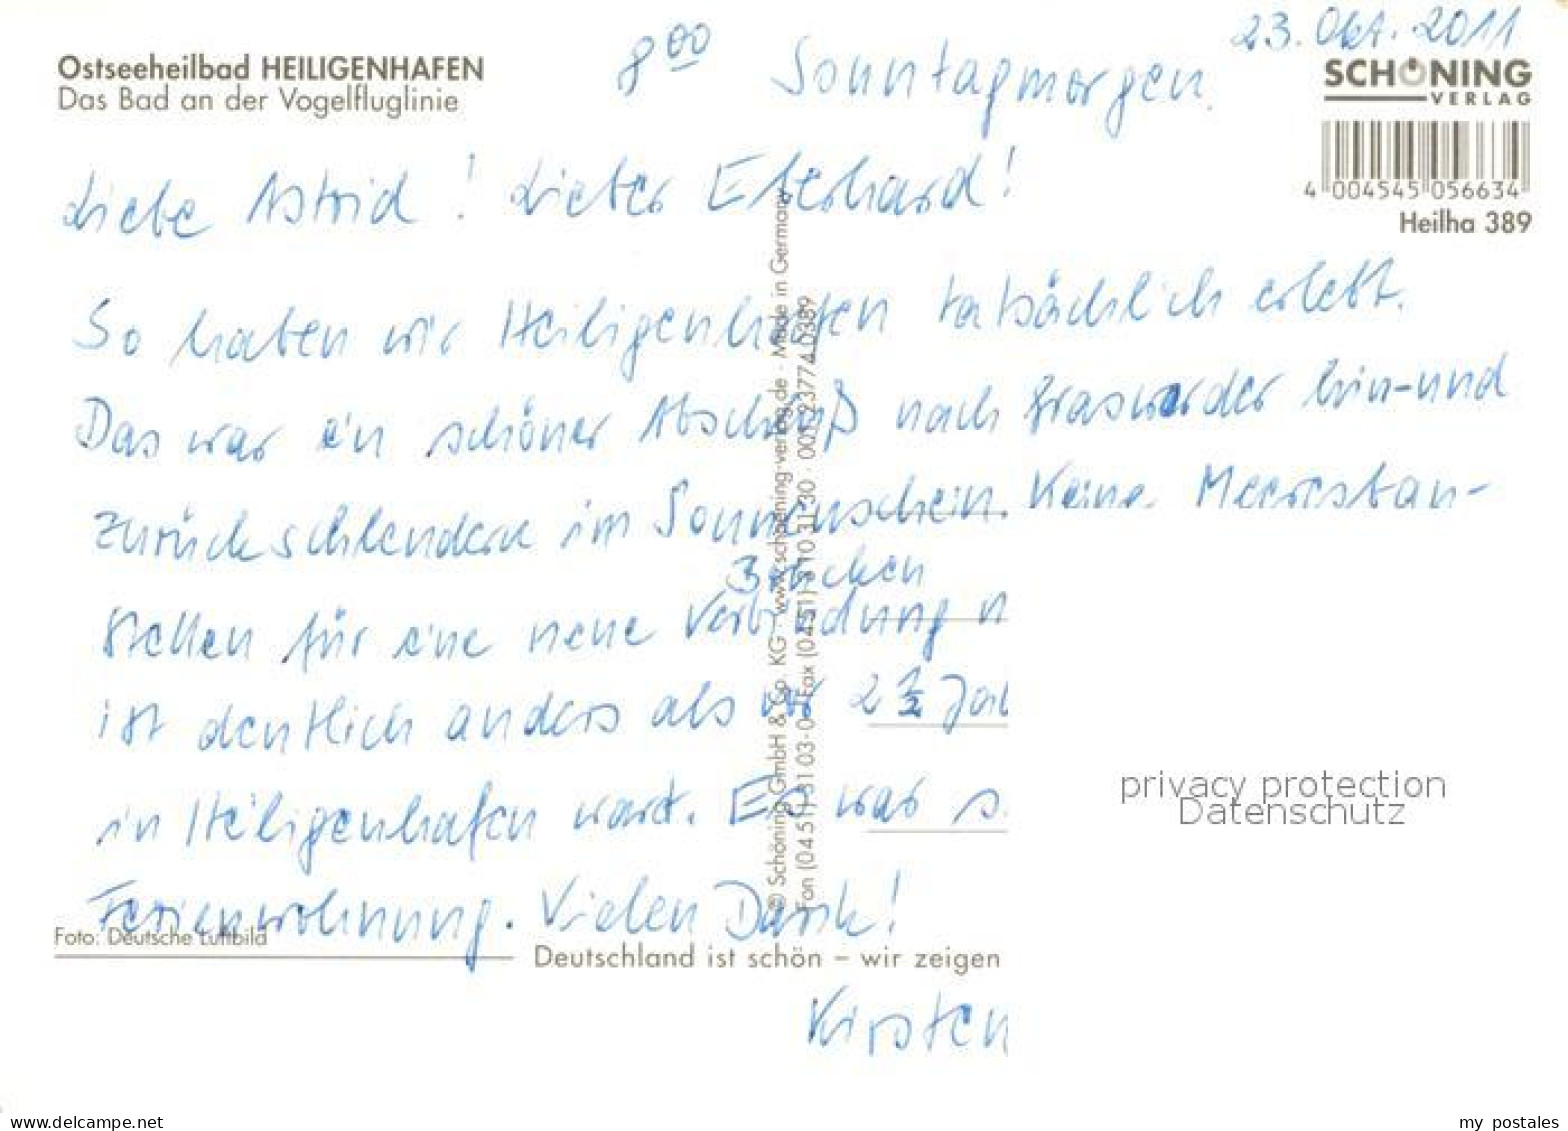 23. Okt. 2011
8 00 Sonntagmorgen.
Ostseeheilbad HEILIGENHAFEN
Das Bad an der Vogelfluglinie
SCHÖNING
VERLAG
4 004545 056634
Heilha 389
Liebe Astrid! Lieber Eberhard!
So haben wir Heiligenhafen tatsächlich erlebt.
Das war ein schöner Abschluß nach Graswarder hin- und
zurückschlendern im Sonnenschein. Keine Meeresbau-
Brücken
stellen für eine neue Verbindung
ist deutlich anders als vor 2 1/2
in Heiligenhafen wart. Es war
Ferienwohnung. Vielen Dank!
Kirsten
Foto: Deutsche Luftbild
Deutschland ist schön – wir zeigen
© Schöning GmbH & Co. KG · www.schoening-verlag.de · Made in Germany
Fon (04 51) 31 03-0 · Fax (04 51) 3 10 31 30
privacy protection
Datenschutz
www.delcampe.net
my_postales